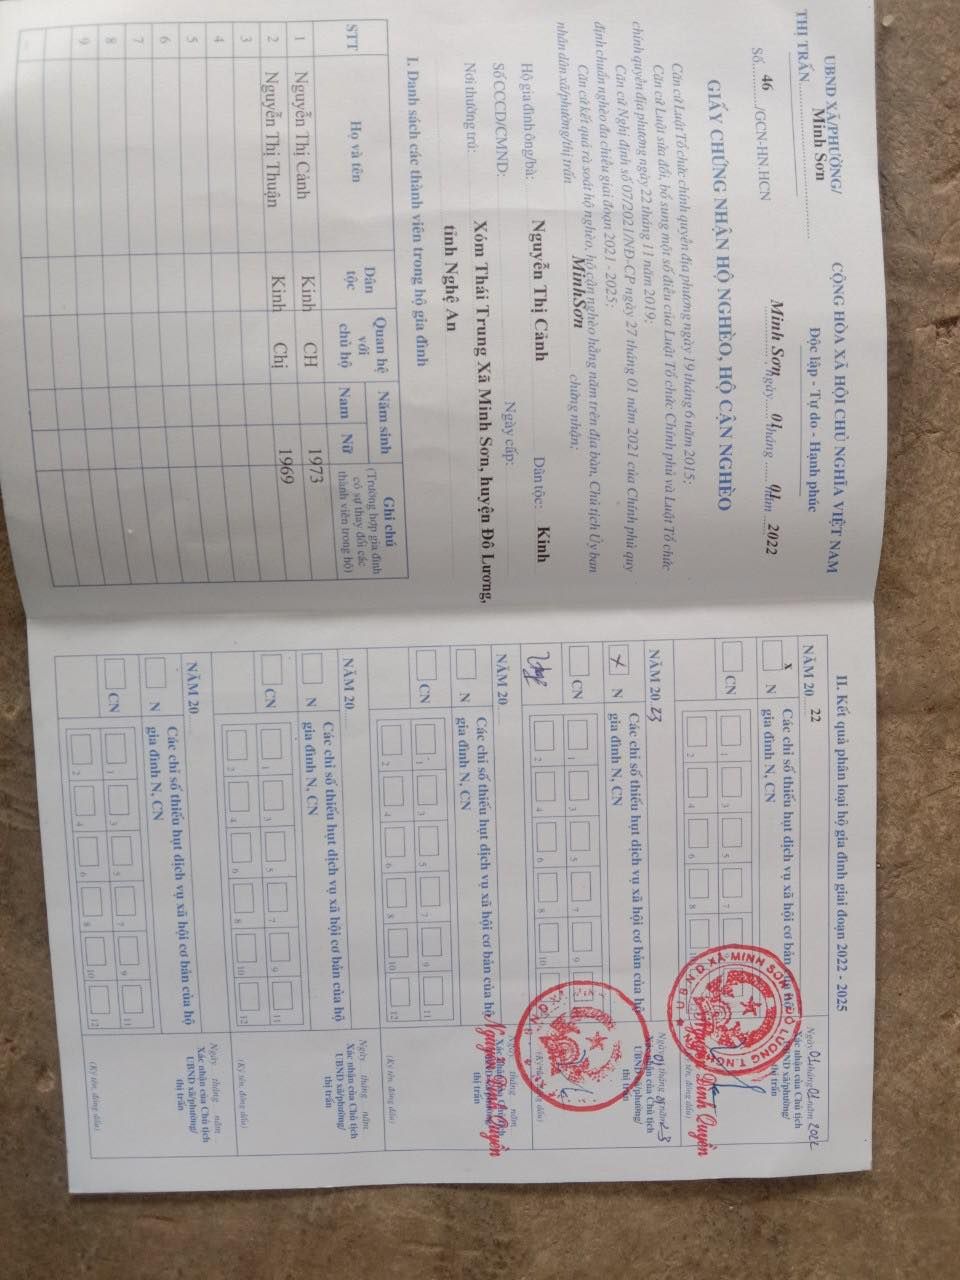 UBND XÃ/PHƯỜNG/
THỊ TRẤN Minh Sơn
Số: 46 /GCN-HN.HCN
CỘNG HÒA XÃ HỘI CHỦ NGHĨA VIỆT NAM
Độc lập - Tự do - Hạnh phúc
Minh Sơn ngày 01 tháng 01 năm 2022
GIẤY CHỨNG NHẬN HỘ NGHÈO, HỘ CẬN NGHÈO
Căn cứ Luật Tổ chức chính quyền địa phương ngày 19 tháng 6 năm 2015;
Căn cứ Luật sửa đổi, bổ sung một số điều của Luật Tổ chức Chính phủ và Luật Tổ chức
chính quyền địa phương ngày 22 tháng 11 năm 2019;
Căn cứ Nghị định số 07/2021/NĐ-CP ngày 27 tháng 01 năm 2021 của Chính phủ quy
định chuẩn nghèo đa chiều giai đoạn 2021 - 2025;
Căn cứ kết quả rà soát hộ nghèo, hộ cận nghèo hằng năm trên địa bàn, Chủ tịch Ủy ban
nhân dân xã/phường/thị trấn Minh Sơn chứng nhận:
Hộ gia đình ông/bà: Nguyễn Thị Cảnh Dân tộc: Kinh
Số CCCD/CMND: Ngày cấp:
Nơi thường trú: Xóm Thái Trung Xã Minh Sơn, huyện Đô Lương,
tỉnh Nghệ An
I. Danh sách các thành viên trong hộ gia đình
STT Họ và tên Dân tộc Quan hệ với chủ hộ Năm sinh Nam Nữ Ghi chú (Trường hợp gia đình có sự thay đổi các thành viên trong hộ)
1 Nguyễn Thị Cảnh Kinh CH 1973
2 Nguyễn Thị Thuận Kinh Chị 1969
3
4
5
6
7
8
9
II. Kết quả phân loại hộ gia đình giai đoạn 2022 - 2025
NĂM 20 22
x N
CN
Các chỉ số thiếu hụt dịch vụ xã hội cơ bản của hộ
gia đình N, CN
1 3 5 7
2 4 6 8
Ngày 01 tháng 01 năm 2022
Xác nhận của Chủ tịch
UBND xã/phường/
thị trấn
U.B.N.D XÃ MINH SƠN H. ĐÔ LƯƠNG T. NGHỆ AN
Nguyễn Đình Quyền
NĂM 20 23
x N
CN
Các chỉ số thiếu hụt dịch vụ xã hội cơ bản của hộ
gia đình N, CN
1 3 5 7 9
2 4 6 8 10
Xác nhận của Chủ tịch
UBND xã/phường/
thị trấn
Nguyễn Đình Quyền
NĂM 20
N
CN
Các chỉ số thiếu hụt dịch vụ xã hội cơ bản của hộ
gia đình N, CN
1 3 5 7 9 11
2 4 6 8 10 12
Ngày tháng năm
Xác nhận của Chủ tịch
UBND xã/phường/
thị trấn
(Ký tên, đóng dấu)
NĂM 20
N
CN
Các chỉ số thiếu hụt dịch vụ xã hội cơ bản của hộ
gia đình N, CN
1 3 5 7 9 11
2 4 6 8 10 12
Ngày tháng năm
Xác nhận của Chủ tịch
UBND xã/phường/
thị trấn
(Ký tên, đóng dấu)
NĂM 20
N
CN
Các chỉ số thiếu hụt dịch vụ xã hội cơ bản của hộ
gia đình N, CN
1 3 5 7 9 11
2 4 6 8 10 12
Ngày tháng năm
Xác nhận của Chủ tịch
UBND xã/phường/
thị trấn
(Ký tên, đóng dấu)